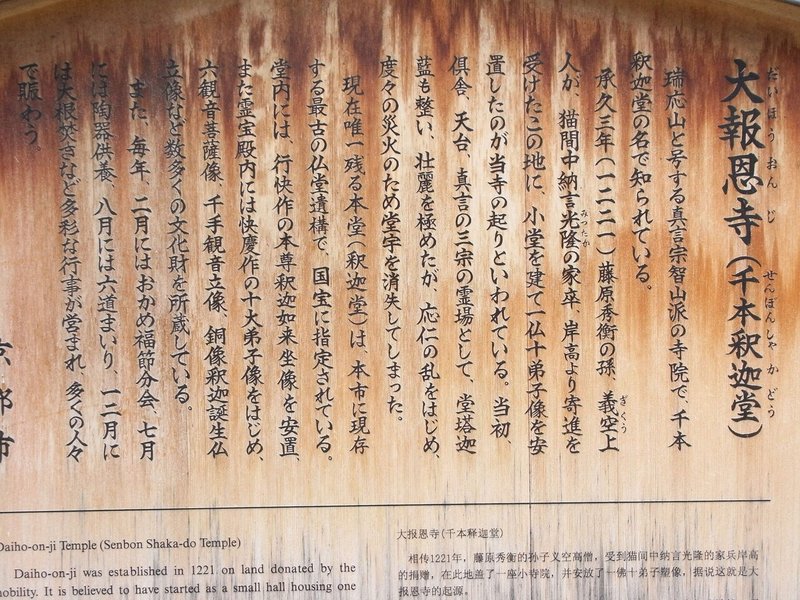 大報恩寺(千本釈迦堂)
だいほうおんじ せんぼんしゃかどう
瑞応山と号する真言宗智山派の寺院で、千本
釈迦堂の名で知られている。
承久三年(一二二一)藤原秀衡の孫、義空上
ぎくう
人が、猫間中納言光隆の家卒、岸高より寄進を
みつたか
受けたこの地に、小堂を建て一仏十弟子像を安
置したのが当寺の起りといわれている。当初、
倶舎、天台、真言の三宗の霊場として、堂塔迦
藍も整い、壮麗を極めたが、応仁の乱をはじめ、
度々の災火のため堂宇を消失してしまった。
現在唯一残る本堂(釈迦堂)は、本市に現存
する最古の仏堂遺構で、国宝に指定されている。
堂内には、行快作の本尊釈迦如来坐像を安置、
また霊宝殿内には快慶作の十大弟子像をはじめ、
六観音菩薩像、千手観音立像、銅像釈迦誕生仏
立像など数多くの文化財を所蔵している。
また、毎年、二月にはおかめ福節分会、七月
には陶器供養、八月には六道まいり、一二月に
は大根焚きなど多彩な行事が営まれ、多くの人々
で賑わう。
京都市
Daiho-on-ji Temple (Senbon Shaka-do Temple)
Daiho-on-ji was established in 1221 on land donated by the
nobility. It is believed to have started as a small hall housing one
大报恩寺(千本释迦堂)
相传1221年，藤原秀衡的孙子义空高僧，受到猫间中纳言光隆的家兵岸高
的捐赠，在此地盖了一座小寺院，并安放了一佛十弟子塑像，据说这就是大
报恩寺的起源。